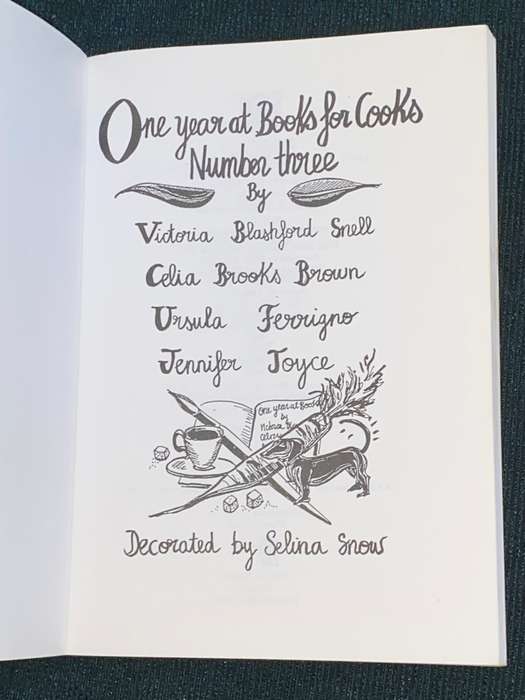 One year at Books for Cooks
Number three
By
Victoria Blashford Snell
Celia Brooks Brown
Ursula Ferrigno
Jennifer Joyce
One year at Books
by
Decorated by Selina Snow